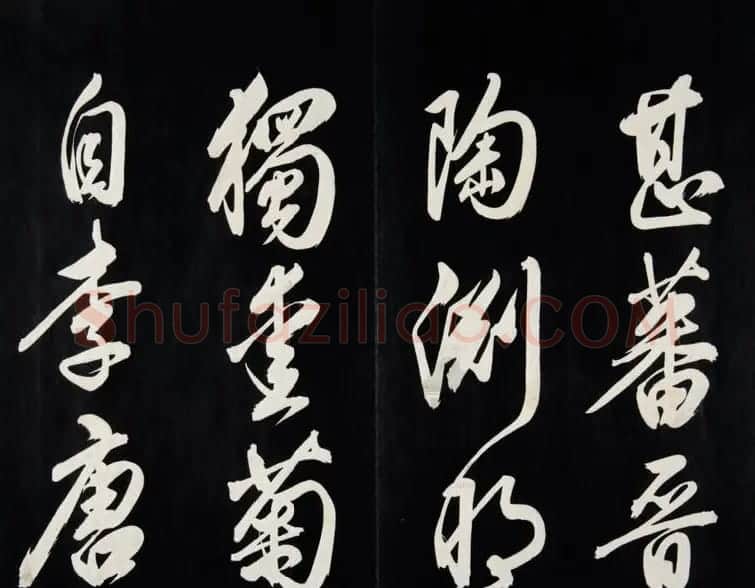 甚蕃晉
陶渊明
獨愛菊
自李唐
Shufaziliao.COM